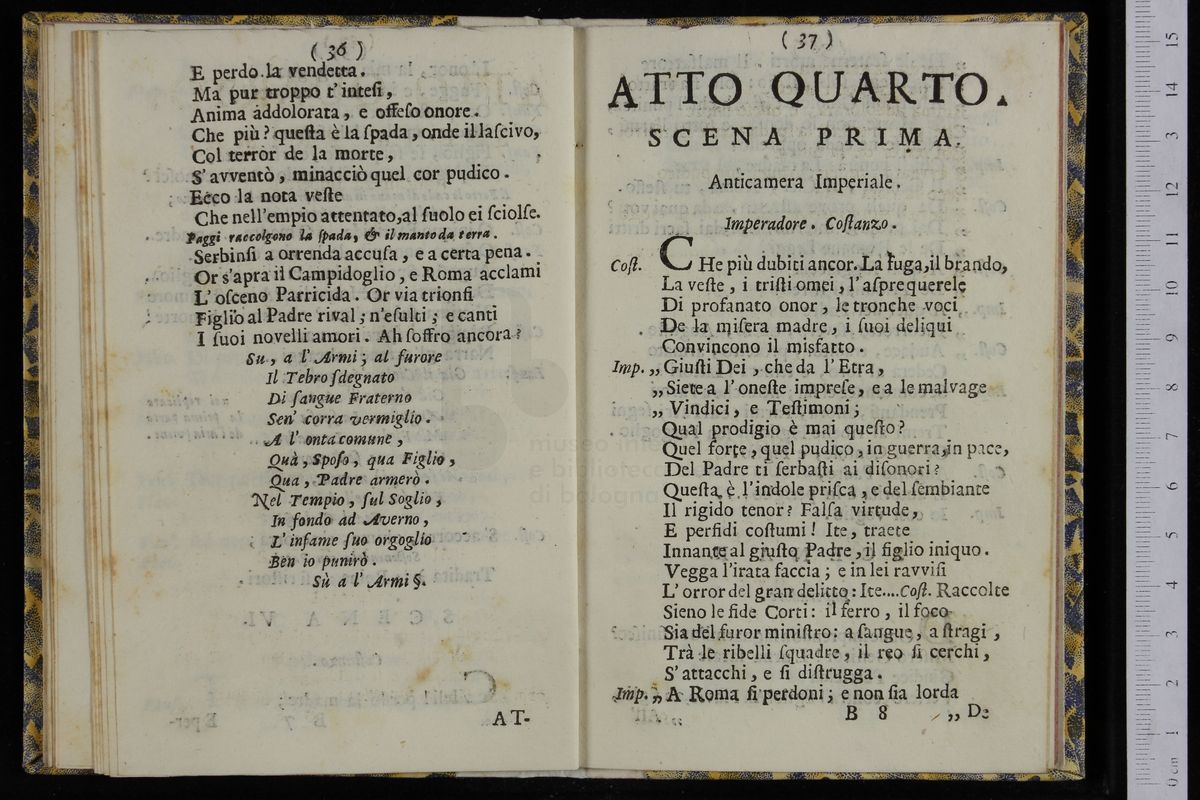 (36)
E perdo la vendetta.
Ma pur troppo t'inteſi,
Anima addolorata, e offeſo onore.
Che più? queſta è la ſpada, onde il laſcivo,
Col terror de la morte,
S'avventò, minacciò quel cor pudico.
Ecco la nota veſte
Che nell'empio attentato, al ſuolo ei ſciolſe.
Paggi raccolgono la ſpada, & il manto da terra.
Serbinſi a orrenda accuſa, e a certa pena.
Or s'apra il Campidoglio, e Roma acclami
L'oſceno Parricida. Or via trionfi
Figlio al Padre rival; n'eſulti; e canti
I ſuoi novelli amori. Ah ſoffro ancora?
Su, a l'Armi; al furore
Il Tebro ſdegnato
Di ſangue Fraterno
Sen' corra vermiglio.
A l'onta comune,
Quà, Spoſo, qua Figlio,
Qua, Padre armerò.
Nel Tempio, ſul Soglio,
In fondo ad Averno,
L'infame ſuo orgoglio
Ben io punirò.
Sù a l'Armi §.
AT-
(37)
ATTO QUARTO.
SCENA PRIMA.
Anticamera Imperiale.
Imperadore. Coſtanzo.
Coſt. CHe più dubiti ancor. La fuga, il brando,
La veſte, i triſti omei, l'aſpre querele
Di profanato onor, le tronche voci
De la miſera madre, i ſuoi deliqui
Convincono il misfatto.
Imp. „Giuſti Dei, che da l'Etra,
„Siete a l'oneſte impreſe, e a le malvage
„Vindici, e Teſtimoni;
Qual prodigio è mai queſto?
Quel forte, quel pudico, in guerra, in pace,
Del Padre ti ſerbaſti ai diſonori?
Queſta è l'indole priſca, e del ſembiante
Il rigido tenor? Falſa virtude,
E perfidi coſtumi! Ite, traete
Innante al giuſto Padre, il figlio iniquo.
Vegga l'irata faccia; e in lei ravviſi
L'orror del gran delitto: Ite....Coſt. Raccolte
Sieno le fide Corti: il ferro, il foco
Sia del furor miniſtro: a ſangue, a ſtragi,
Trà le ribelli ſquadre, il reo ſi cerchi,
S'attacchi, e ſi diſtrugga.
Imp. „A Roma ſi perdoni; e non ſia lorda
B 8 „De